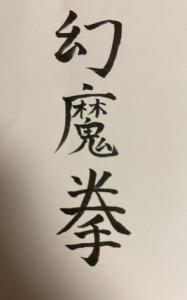 幻魔拳